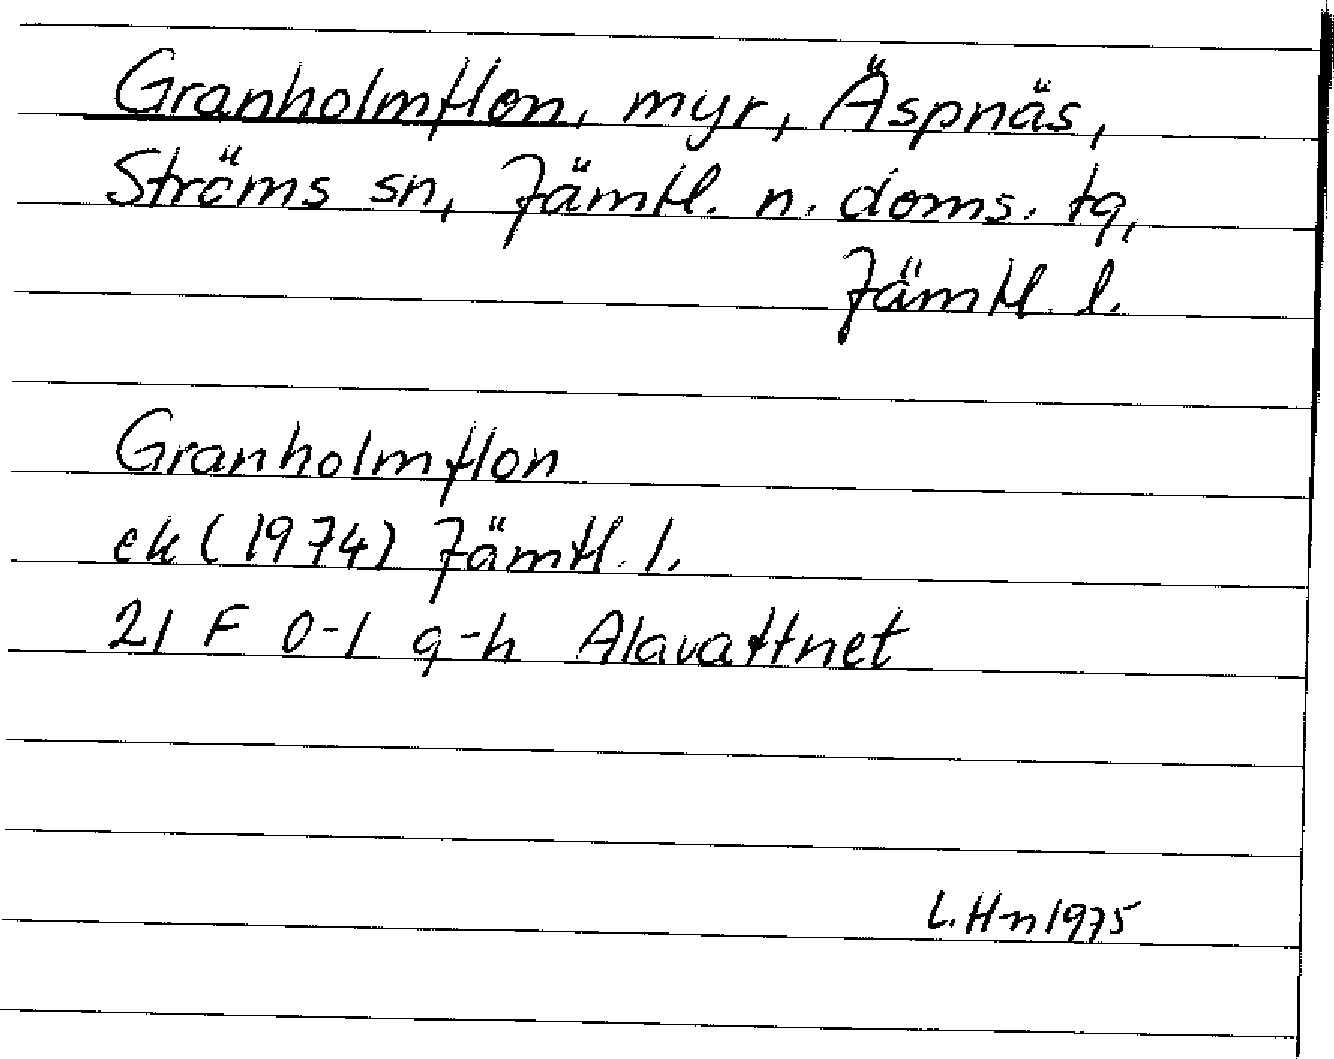 Granholmflon, myr, Äspnäs,
Ströms sn, Jämtl. n. doms. tg,
Jämtl l.
Granholmflon
ek (1974) Jämtl. l.
21 F 0-1 g-h Alavattnet
L. Hn 1975